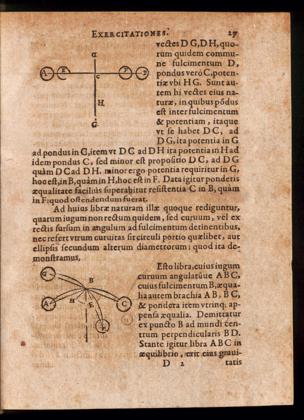 EXERCITATIONES. 27
vectes D G, D H, quo-
rum quidem commu-
ne fulcimentum D,
pondus verò C, poten-
tiæ vbi H G. Sunt au-
tem hi vectes eius na-
turæ, in quibus põdus
est inter fulcimentum
& potentiam, itaque
vt se habet D C, ad
D G, ita potentia in G
ad pondus in C, item vt D C ad D H ita potentia in H ad
idem pondus C, sed minor est proportio D C, ad D G
quàm D C ad D H. minor ergo potentia requiritur in G,
hoc est, in B, quàm in H, hoc est in F. Data igitur ponderis
æqualitate facilius superabitur resistentia C in B, quàm
in F: quod ostendendum fuerat.
Ad huius libræ naturam illæ quoque rediguntur,
quarum iugum non rectum quidem, sed curuum, vel ex
rectis sursum in angulum ad fulcimentum desinentibus,
nec refert vtrum curuitas sit circuli portio quælibet, aut
ellipsis secundum alterum diametrorum; quod ita de-
monstramus.
Esto libra, cuius iugum
curuum angulatúue A B C,
cuius fulcimentum B, æqua-
lia autem brachia A B, B C,
& pondera item vtrinq. ap-
pensa æqualia. Demittatur
ex puncto B ad mundi cen-
trum perpendicularis B D.
Stante igitur libra A B C in
æquilibrio, erit eius graui-
D 2 tatis